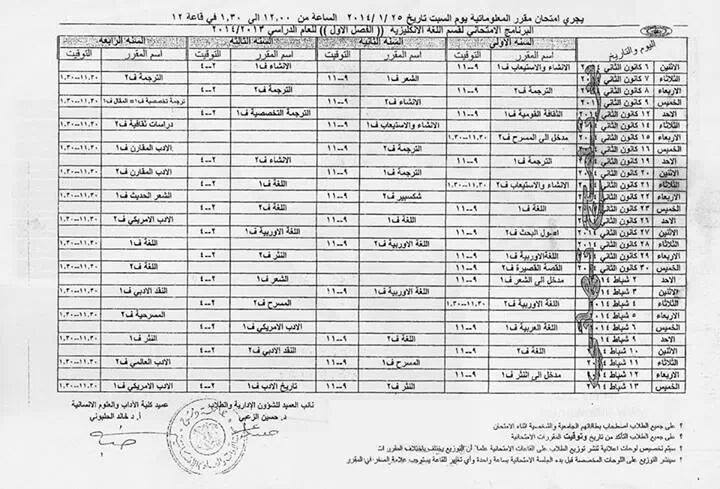 يجري امتحان مقرر المعلوماتية يوم السبت تاريخ ٢٥ /١ /٢٠١٤ الساعة من ١٢,٠٠ الى ١,٣٠ في قاعة ١٢
البرنامج الامتحاني لقسم اللغة الانكليزيه (( الفصل الاول )) للعام الدراسي ٢٠١٤/٢٠١٣
اليوم والتاريخ السنه الاولى السنه الثانيه السنه الثالثه السنه الرابعه
اسم المقرر التوقيت اسم المقرر التوقيت اسم المقرر التوقيت اسم المقرر التوقيت
الاثنين ٦ كانون الثاني الانشاء والاستيعاب ف١ ٩--١١ الانشاء ف١ ٢--٤
الثلاثاء ٧ كانون الثاني الشعر ف١ ٩--١١ الترجمة ف٢ ١١,٣٠--١,٣٠
الاربعاء ٨ كانون الثاني الترجمة ف٢ ٩--١١ الترجمة ف٢ ٢--٤
الخميس ٩ كانون الثاني الانشاء ف٢ ٩--١١ ترجمة تخصصية ف١# المقال ف١ ١١,٣٠--١,٣٠
الاحد ١٢ كانون الثاني الثقافة القومية ف١ ٩--١١ الترجمة التخصصية ف١ ٢--٤
الثلاثاء ١٤ كانون الثاني الانشاء والاستيعاب ف١ ٩--١١ دراسات ثقافية ف٢ ١١,٣٠--١,٣٠
الاربعاء ١٥ كانون الثاني مدخل الى المسرح ف٢ ١١,٣٠--١,٣٠
الخميس ١٦ كانون الثاني الادب المقارن ف١ ١١,٣٠--١,٣٠
الاحد ١٩ كانون الثاني الترجمة ف١ ٩--١١ الانشاء ف٢ ٢--٤
الاثنين ٢٠ كانون الثاني الترجمة ف١ ٩--١١ الادب المقارن ف٢ ١١,٣٠--١,٣٠
الثلاثاء ٢١ كانون الثاني الانشاء والاستيعاب ف٢ ١١,٣٠--١,٣٠ اللغة ف١ ٢--٤
الاربعاء ٢٢ كانون الثاني شكسبير ف٢ ٩--١١ الشعر الحديث ف١ ١١,٣٠--١,٣٠
الخميس ٢٣ كانون الثاني اللغة ف١ ٩--١١ اللغة ف٢ ٢--٤
الاحد ٢٦ كانون الثاني اللغة ف١ ٩--١١ الادب الامريكي ف٢ ١١,٣٠--١,٣٠
الاثنين ٢٧ كانون الثاني البحث ف٢ ٩--١١ اللغة الاوربية ف١ ٢--٤
الثلاثاء ٢٨ كانون الثاني اللغة الاوربية ف٢ ٩--١١ اللغة ف١ ١١,٣٠--١,٣٠
الاربعاء ٢٩ كانون الثاني اللغةالاوربية ف١ ٩--١١ النثر ف١ ٢--٤
الخميس ٣٠ كانون الثاني القصة القصيرة ف٢ ٩--١١ اللغة ف٢ ١١,٣٠--١,٣٠
الاحد ٢ شباط مدخل الى الشعر ف١ ٩--١١ الشعر ف١ ٢--٤
الاثنين ٣ شباط اللغة الاوربية ف١ ٩--١١ النقد الادبي ف١ ١١,٣٠--١,٣٠
الثلاثاء ٤ شباط اللغة الاوربية ف٢ ١١,٣٠--١,٣٠ المسرح ف٢ ٢--٤
الاربعاء ٥ شباط اللغة ف٢ ٩--١١ المسرحية ف٢ ١١,٣٠--١,٣٠
الخميس ٦ شباط اللغة العربية ف١ ٩--١١ الادب الامريكي ف١ ٢--٤
الاحد ٩ شباط اللغة ف٢ ٩--١١ النثر ف١ ١١,٣٠--١,٣٠
الاثنين ١٠ شباط النقد الادبي ف٢ ٢--٤
الثلاثاء ١١ شباط المسرح ف١ ٩--١١ الادب العالمي ف٢ ١١,٣٠--١,٣٠
الاربعاء ١٢ شباط مدخل الى النثر ف١ ٩--١١
الخميس ١٣ شباط النثر ف٢ ٩--١١ تاريخ الادب ف١ ٢--٤ الادب الامريكي ف١ ١١,٣٠--١,٣٠
نائب العميد للشؤون الإدارية والطلاب
د. حسين الزعبي
عميد كلية الآداب والعلوم الانسانية
أ.د خالد الحلبوني
؟ على جميع الطلاب اصطحاب بطاقاتهم الجامعية والشخصية اثناء الامتحان
؟ على جميع الطلاب التأكد من تاريخ وتوقيت المقررات الامتحانية
؟ سيتم تخصيص لوحات اعلانية لنشر توزيع الطلاب على القاعات الامتحانية علما أن التوزيع يختلف باختلاف المقررات
؟ سينشر التوزيع على اللوحات المخصصة قبل بدء الجلسة الامتحانية بساعة واحدة وأي تغيير القاعة يستوجب علامة الصفر في المقرر